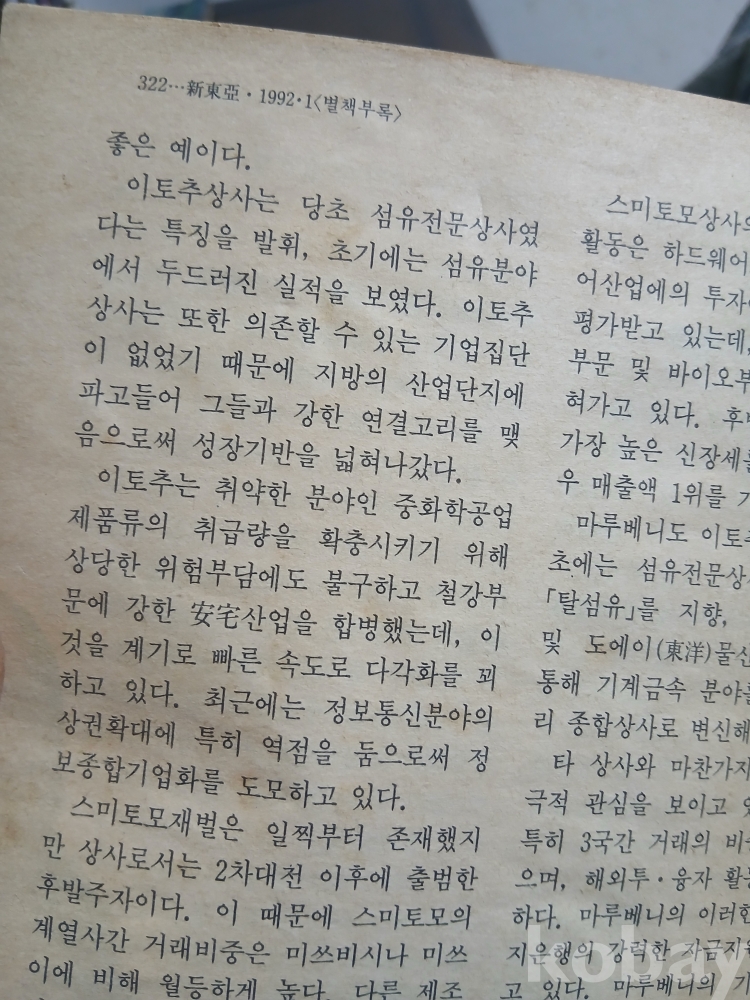 322…新東亞·1992·1〈별책부록〉
좋은 예이다.
이토추상사는 당초 섬유전문상사였
다는 특징을 발휘, 초기에는 섬유분야
에서 두드러진 실적을 보였다. 이토추
상사는 또한 의존할 수 있는 기업집단
이 없었기 때문에 지방의 산업단지에
파고들어 그들과 강한 연결고리를 맺
음으로써 성장기반을 넓혀나갔다.
이토추는 취약한 분야인 중화학공업
제품류의 취급량을 확충시키기 위해
상당한 위험부담에도 불구하고 철강부
문에 강한 安宅산업을 합병했는데, 이
것을 계기로 빠른 속도로 다각화를 꾀
하고 있다. 최근에는 정보통신분야의
상권확대에 특히 역점을 둠으로써 정
보종합기업화를 도모하고 있다.
스미토모재벌은 일찍부터 존재했지
만 상사로서는 2차대전 이후에 출범한
후발주자이다. 이 때문에 스미토모의
계열사간 거래비중은 미쓰비시나 미쓰
이에 비해 월등하게 높다. 다른 제조
스미토모상사의
활동은 하드웨어
어산업에의 투자
평가받고 있는데,
부문 및 바이오부
혀가고 있다. 후
가장 높은 신장세를
우 매출액 1위를
마루베니도 이토추
초에는 섬유전문상사
「탈섬유」를 지향,
및 도에이(東洋)물산
통해 기계금속 분야를
리 종합상사로 변신해
타 상사와 마찬가지
극적 관심을 보이고 있
특히 3국간 거래의 비
으며, 해외투·융자 활동
하다. 마루베니의 이러한
지은행의 강력한 자금지원
고 있다. 마루베니의
kobay